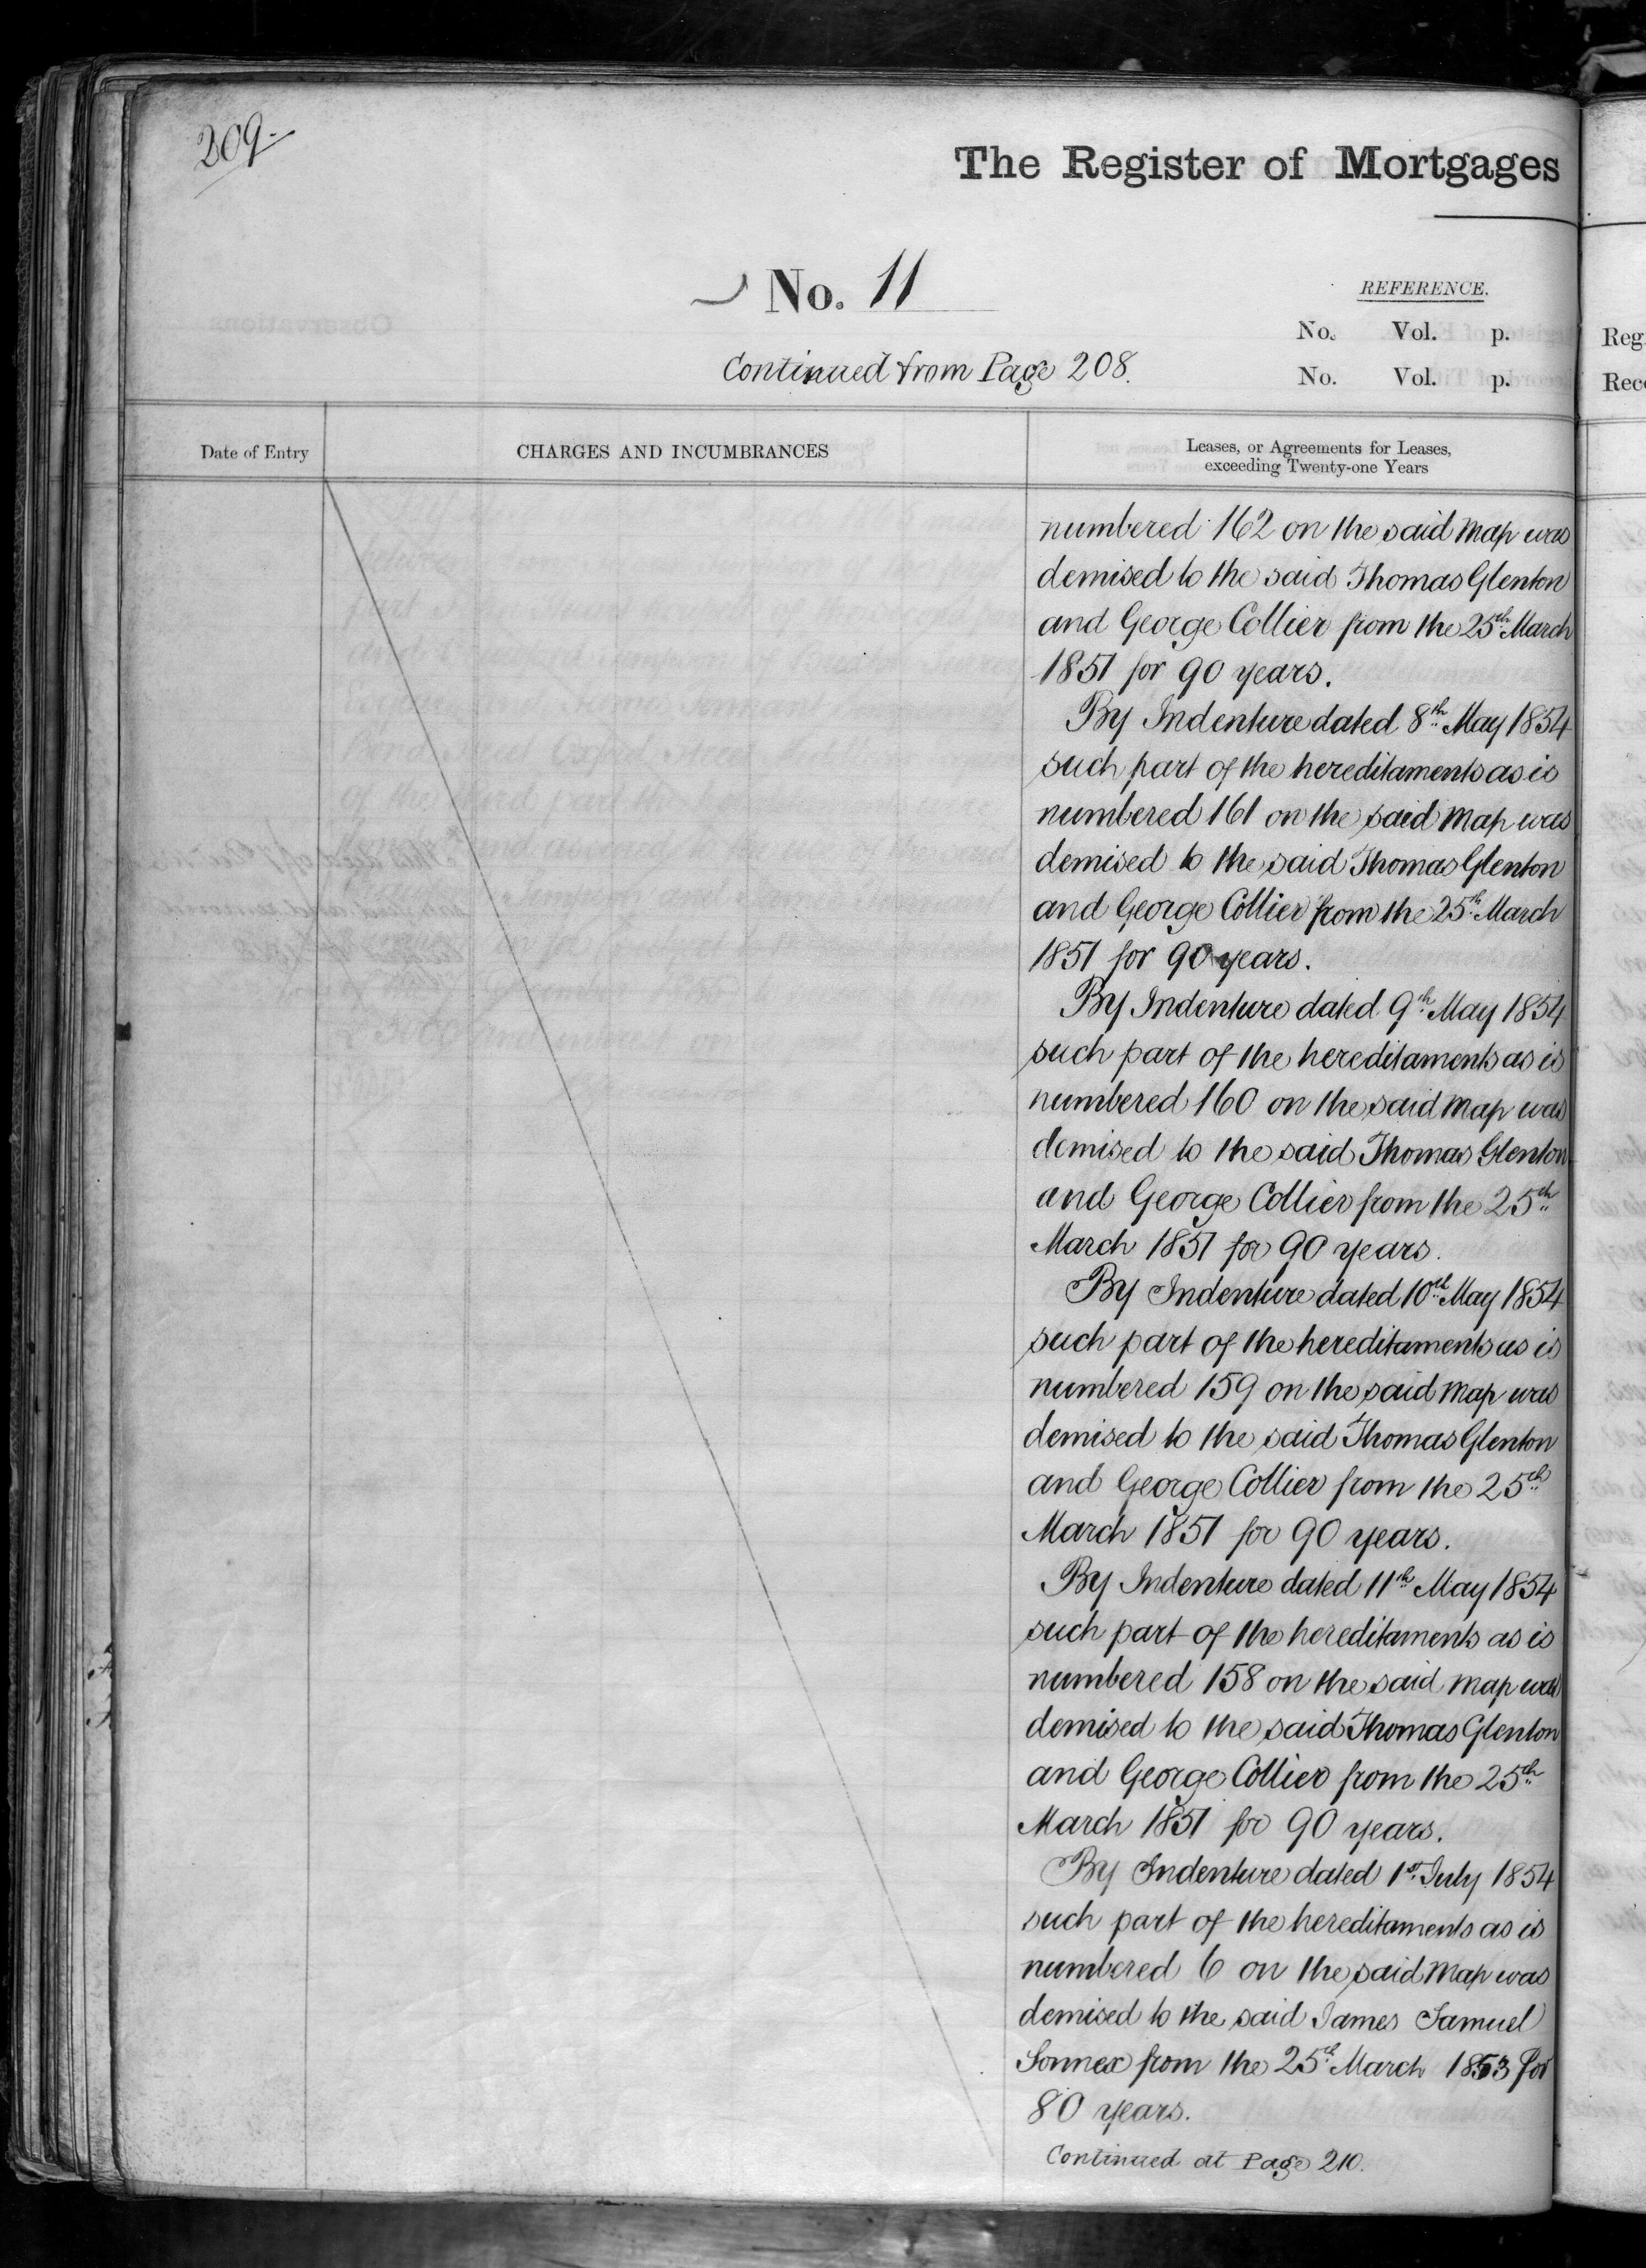 209
The Register of Mortgages
No. 11
REFERENCE.
No. Vol. p.
Continued from Page 208.
No. Vol. p.
Reg
Rec
Date of Entry
CHARGES AND INCUMBRANCES
Leases, or Agreements for Leases,
exceeding Twenty-one Years
numbered 162 on the said map was
demised to the said Thomas Glenton
and George Collier from the 25th March
1851 for 90 years.
By Indenture dated 8th May 1854
such part of the hereditaments as is
numbered 161 on the said map was
demised to the said Thomas Glenton
and George Collier from the 25th March
1851 for 90 years.
By Indenture dated 9th May 1854
such part of the hereditaments as is
numbered 160 on the said map was
demised to the said Thomas Glenton
and George Collier from the 25th
March 1851 for 90 years.
By Indenture dated 10th May 1854
such part of the hereditaments as is
numbered 159 on the said map was
demised to the said Thomas Glenton
and George Collier from the 25th
March 1851 for 90 years.
By Indenture dated 11th May 1854
such part of the hereditaments as is
numbered 158 on the said map was
demised to the said Thomas Glenton
and George Collier from the 25th
March 1851 for 90 years.
By Indenture dated 1st July 1854
such part of the hereditaments as is
numbered 6 on the said map was
demised to the said James Samuel
Sonnex from the 25th March 1853 for
80 years.
Continued at Page 210.